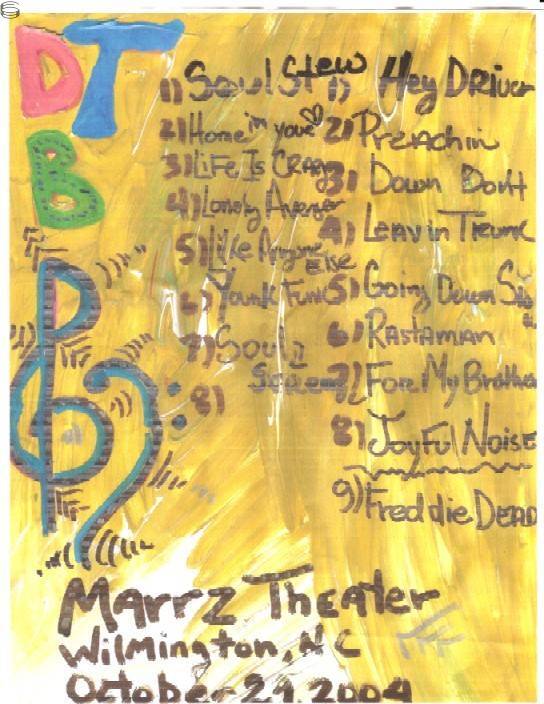 DT
B
1) Soul Stew
2) Home in Your
3) Life Is Crazy
4) Lonely Avenger
5) Like Anyone Else
6) Funk
7) Soul 2
8)
1) Hey Driver
2) Preachin
3) Down Dont
4) Leavin Trunk
5) Going Down
6) Rastaman
7) For My Brother
8) Joyful Noise
9) Freddie Dead
Marrz Theater
Wilmington, NC
October 29, 2004